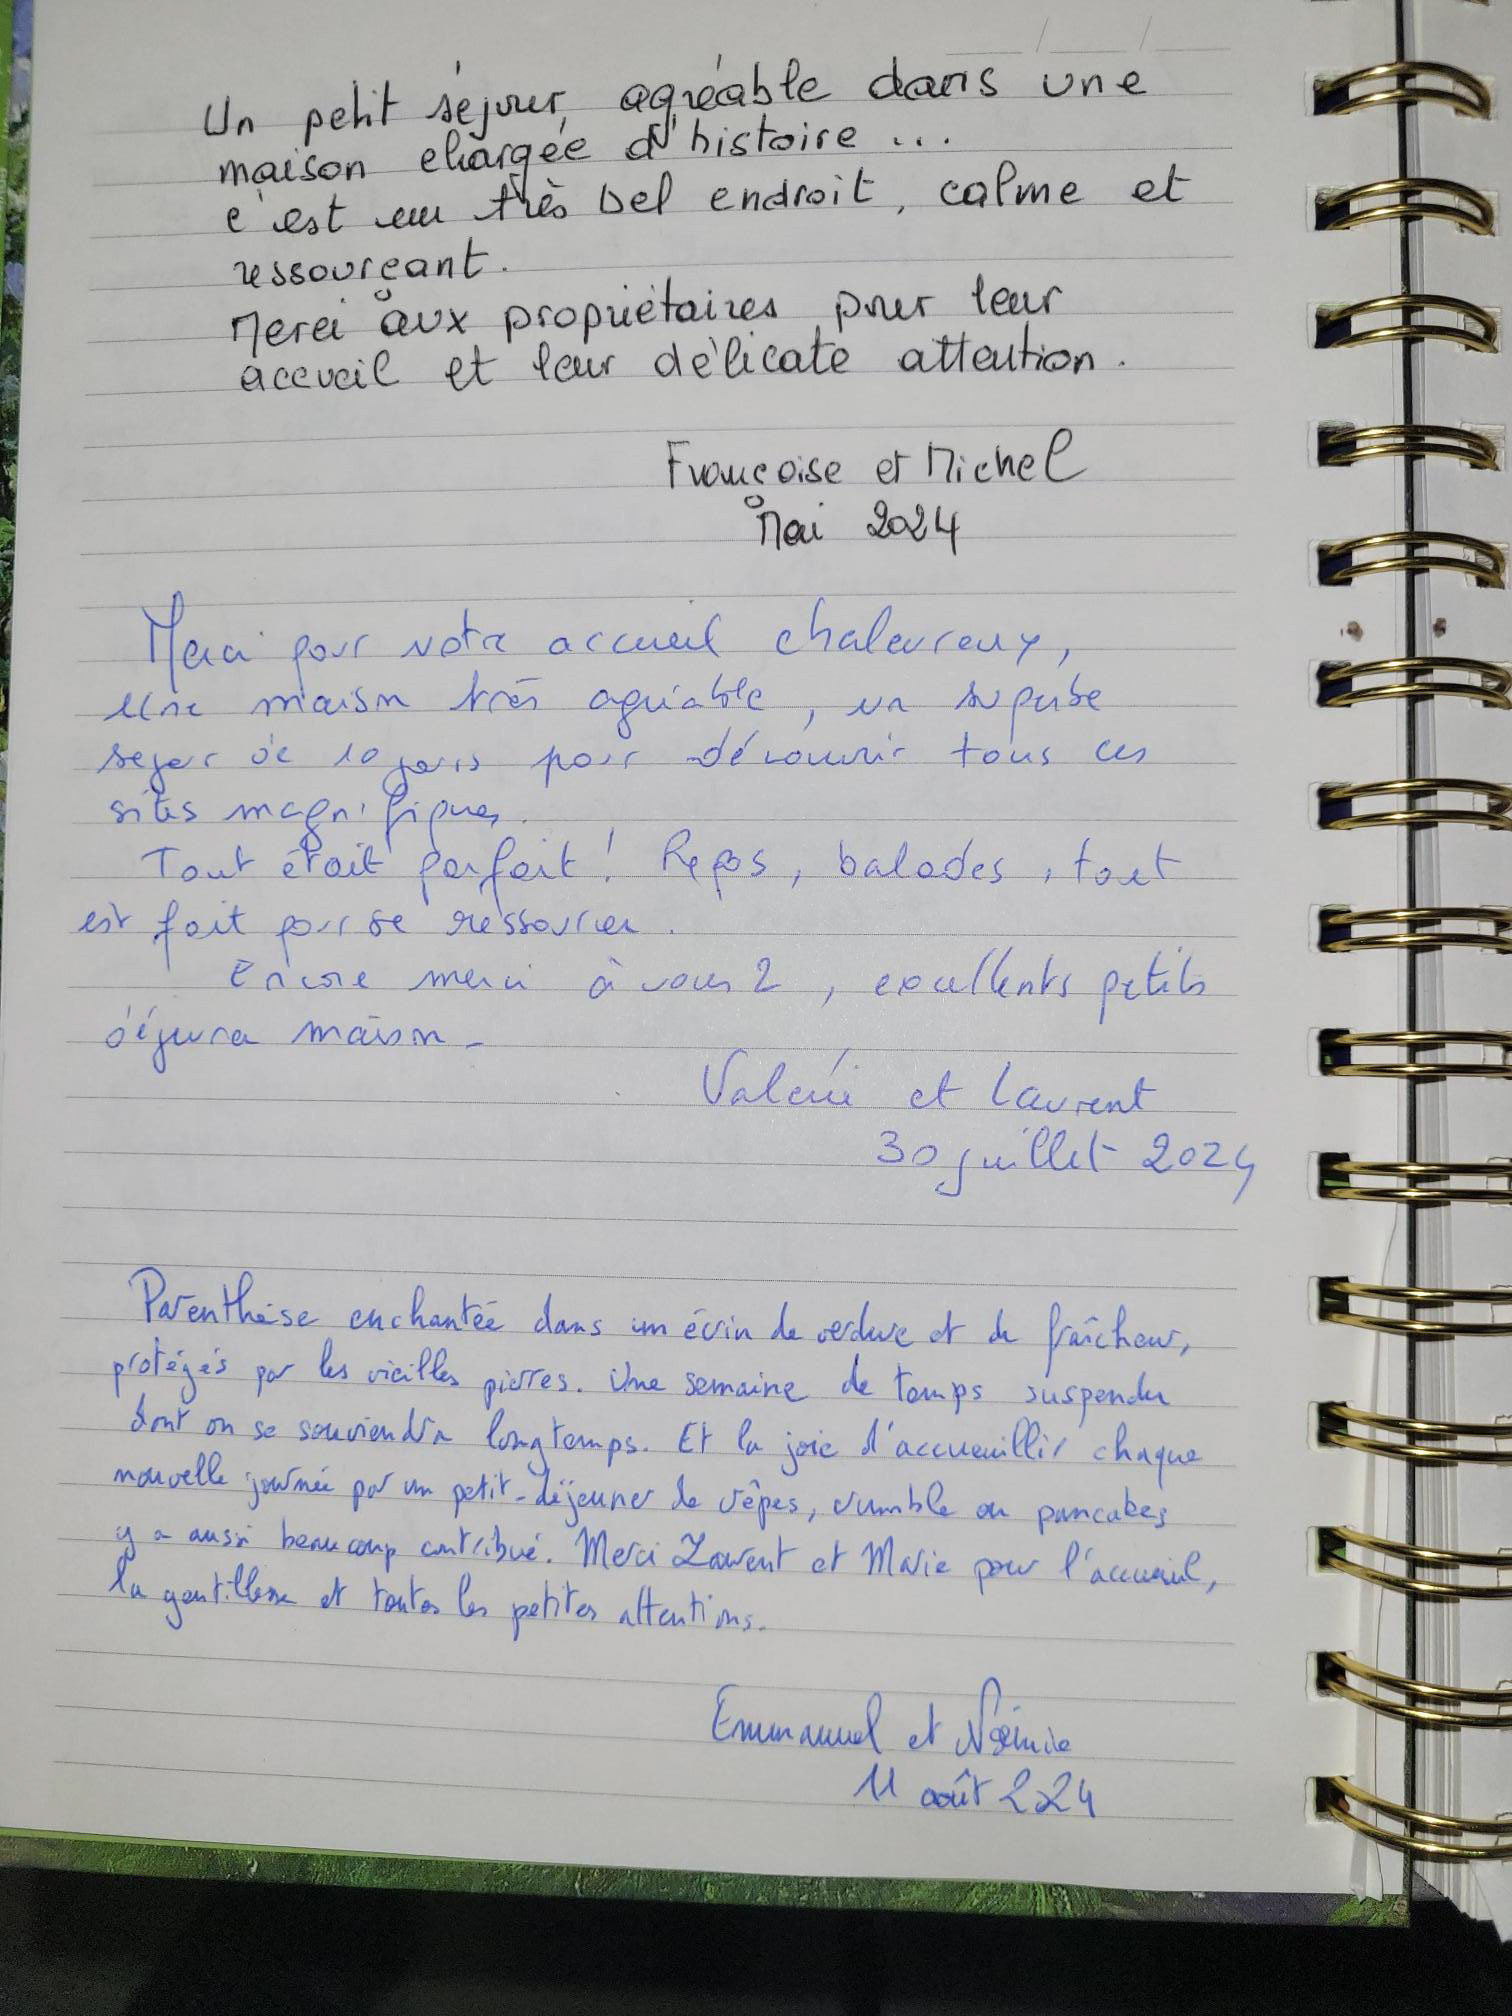 Un petit séjour, agréable dans une
maison chargée d'histoire ...
c'est un très bel endroit, calme et
ressourçant.
Merci aux propriétaires pour leur
accueil et leur délicate attention.
Françoise et Michel
Mai 2024
Merci pour votre accueil chaleureux,
Une maison très agréable, un superbe
sejour de 10 jours pour découvrir tous ces
sites magnifiques.
Tout était parfait ! Repos, balades, tout
est fait pour se ressourcer.
Encore merci à vous 2, excellents petits
déjeuners maison.
Valérie et Laurent
30 juillet 2024
Parenthèse enchantée dans un écrin de verdure et de fraîcheur,
protégés par les vieilles pierres. Une semaine de temps suspendu
dont on se souviendra longtemps. Et la joie d'accueuillir chaque
nouvelle journée par un petit-déjeuner de crêpes, crumble ou pancakes
y a aussi beaucoup contribué. Merci Laurent et Marie pour l'accueil,
la gentillesse et toutes les petites attentions.
Emmanuel et Noémie
11 août 2024